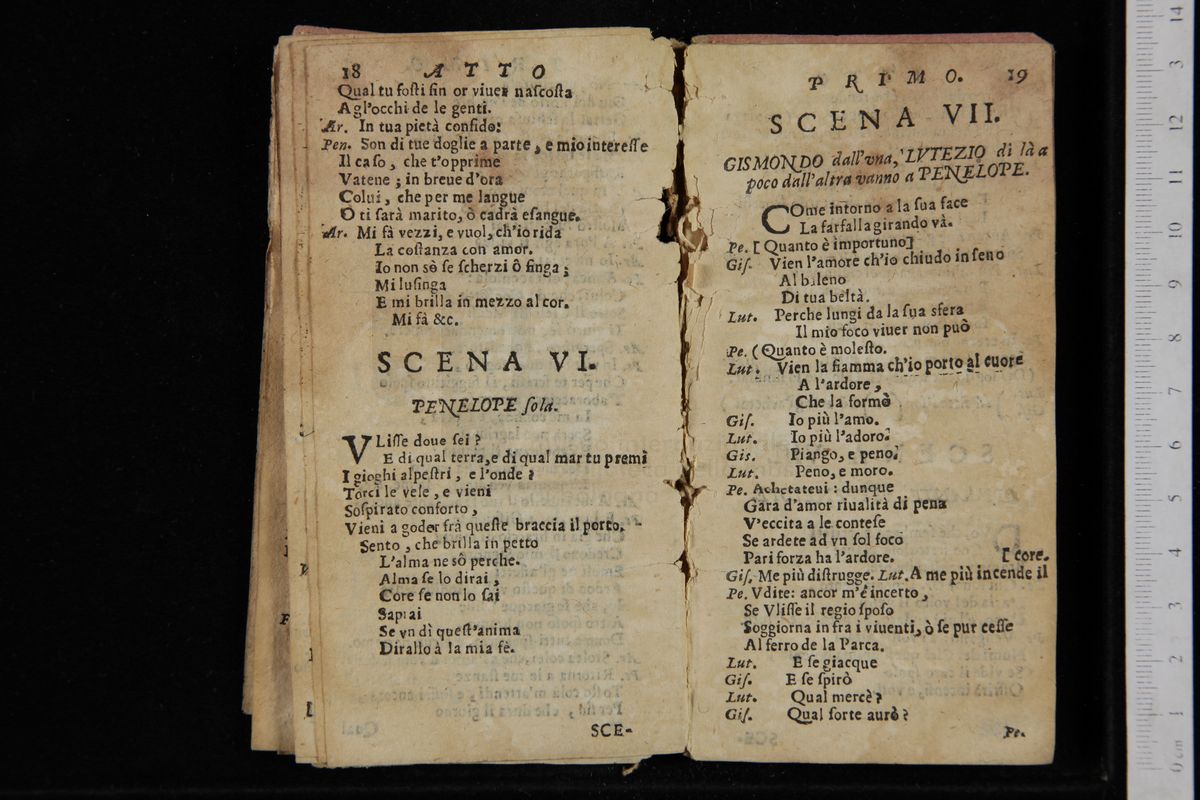 18 ATTO
Qual tu fosti sin or viuer nascosta
A gl'occhi de le genti.
Ar. In tua pietà confido:
Pen. Son di tue doglie a parte, e mio interesse
Il caso, che t'opprime
Vatene; in breue d'ora
Colui, che per me langue
O ti sarà marito, ò cadrà esangue.
Ar. Mi fà vezzi, e vuol, ch'io rida
La costanza con amor.
Io non sô se scherzi ô finga;
Mi lusinga
E mi brilla in mezzo al cor.
Mi fà &c.
SCENA VI.
PENELOPE sola.
VLisse doue sei?
E di qual terra, e di qual mar tu premi
I gioghi alpestri, e l'onde?
Torci le vele, e vieni
Sospirato conforto,
Vieni a goder frà queste braccia il porto.
Sento, che brilla in petto
L'alma ne sô perche.
Alma se lo dirai,
Core se non lo sai
Saprai
Se vn dì quest'anima
Dirallo à la mia fè.
SCE-
PRIMO. 19
SCENA VII.
GISMONDO dall'vna, LVTEZIO di là a
poco dall'altra vanno a PENELOPE.
COme intorno a la sua face
La farfalla girando và.
Pe. [Quanto è importuno]
Gis. Vien l'amore ch'io chiudo in seno
Al baleno
Di tua beltà.
Lut. Perche lungi da la sua sfera
Il mio foco viuer non può
Pe. (Quanto è molesto.
Lut. Vien la fiamma ch'io porto al cuore
A l'ardore,
Che la formò
Gis. Io più l'amo.
Lut. Io più l'adoro.
Gis. Piango, e peno.
Lut. Peno, e moro.
Pe. Achetateui: dunque
Gara d'amor riualità di pena
V'eccita a le contese
Se ardete ad vn sol foco
Pari forza ha l'ardore. [core.
Gis. Me più distrugge. Lut. A me più incende il
Pe. Vdite: ancor m'é incerto,
Se Vlisse il regio sposo
Soggiorna in fra i viuenti, ò se pur cesse
Al ferro de la Parca.
Lut. E se giacque
Gis. E se spirò
Lut. Qual mercè?
Gis. Qual sorte aurò?
Pe.